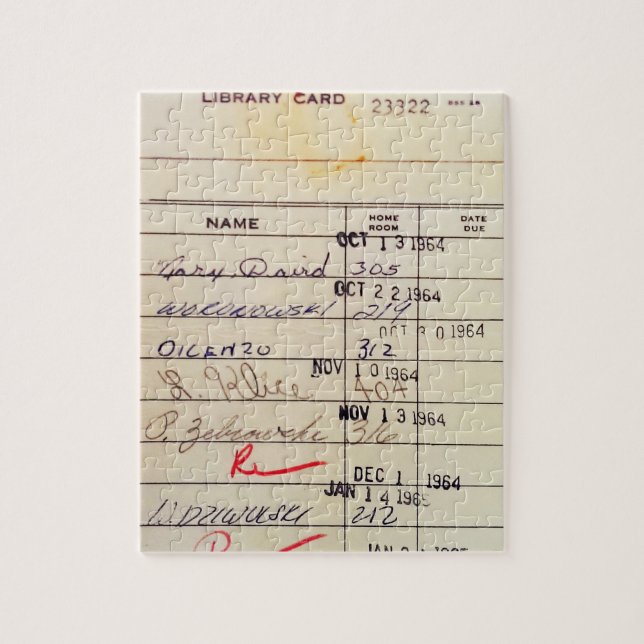 LIBRARY CARD 23322
NAME HOME ROOM DATE DUE
OCT 13 1964
Gary Daird 305
OCT 22 1964
WORONOWSKI 219
OCT 30 1964
DILENZO 312
NOV 10 1964
L. Klice 404
NOV 13 1964
P. 316
Re
DEC 1 1964
JAN 14 1965
W. DZIWULSKI 212